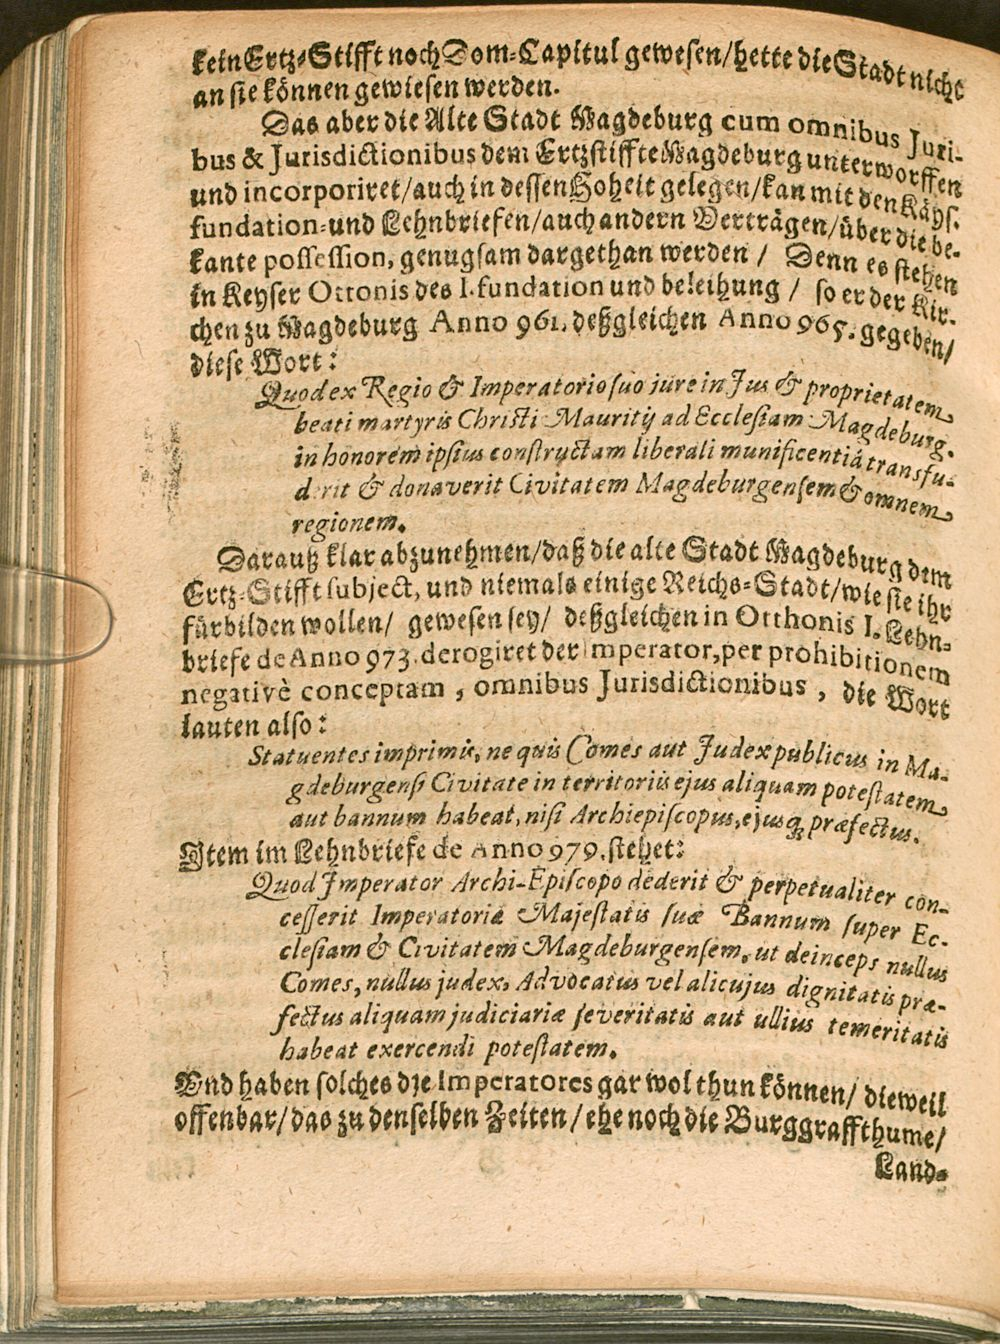 kein Ertz-Stifft noch Dom-Capitul gewesen/hette die Stadt nicht
an sie können gewiesen werden.
Das aber die Alte Stadt Magdeburg cum omnibus Juri-
bus & Jurisdictionibus dem Ertzstiffte Magdeburg unterworffen
und incorporiret/auch in dessen Hoheit gelegen/kan mit den Käys.
fundation-und Lehnbriefen/auch andern Verträgen/über die be-
kante possession, genugsam dargethan werden / Denn es stehen
in Keyser Ottonis des I. fundation und beleihung / so er der Kir-
chen zu Magdeburg Anno 961. deßgleichen Anno 965. gegeben/
diese Wort:
Quod ex Regio & Imperatorio suo jure in Jus & proprietatem
beati martyris Christi Mauritij ad Ecclesiam Magdeburg.
in honorem ipsius constructam liberali munificentiâ transfu-
derit & donaverit Civitatem Magdeburgensem & omnem
regionem.
Darauß klar abzunehmen/daß die alte Stadt Magdeburg dem
Ertz-Stifft subject, und niemals einige Reichs-Stadt/wie sie ihr
fürbilden wollen/ gewesen sey/ deßgleichen in Otthonis I. Lehn-
briefe de Anno 973. derogiret der Imperator, per prohibitionem
negativè conceptam, omnibus Jurisdictionibus, die Wort
lauten also:
Statuentes imprimis, ne quis Comes aut Judex publicus in Ma-
gdeburgensi Civitate in territoriis ejus aliquam potestatem
aut bannum habeat, nisi Archiepiscopus, ejusq; præfectus.
Item im Lehnbriefe de Anno 979. stehet:
Quod Imperator Archi-Episcopo dederit & perpetualiter con-
cesserit Imperatoriæ Majestatis suæ Bannum super Ec-
clesiam & Civitatem Magdeburgensem, ut deinceps nullus
Comes, nullus judex, Advocatus vel alicujus dignitatis præ-
fectus aliquam judiciariæ severitatis aut ullius temeritatis
habeat exercendi potestatem.
Vnd haben solches die Imperatores gar wol thun können/ dieweil
offenbar/das zu denselben Zeiten/ehe noch die Burggraffthume/
Land-